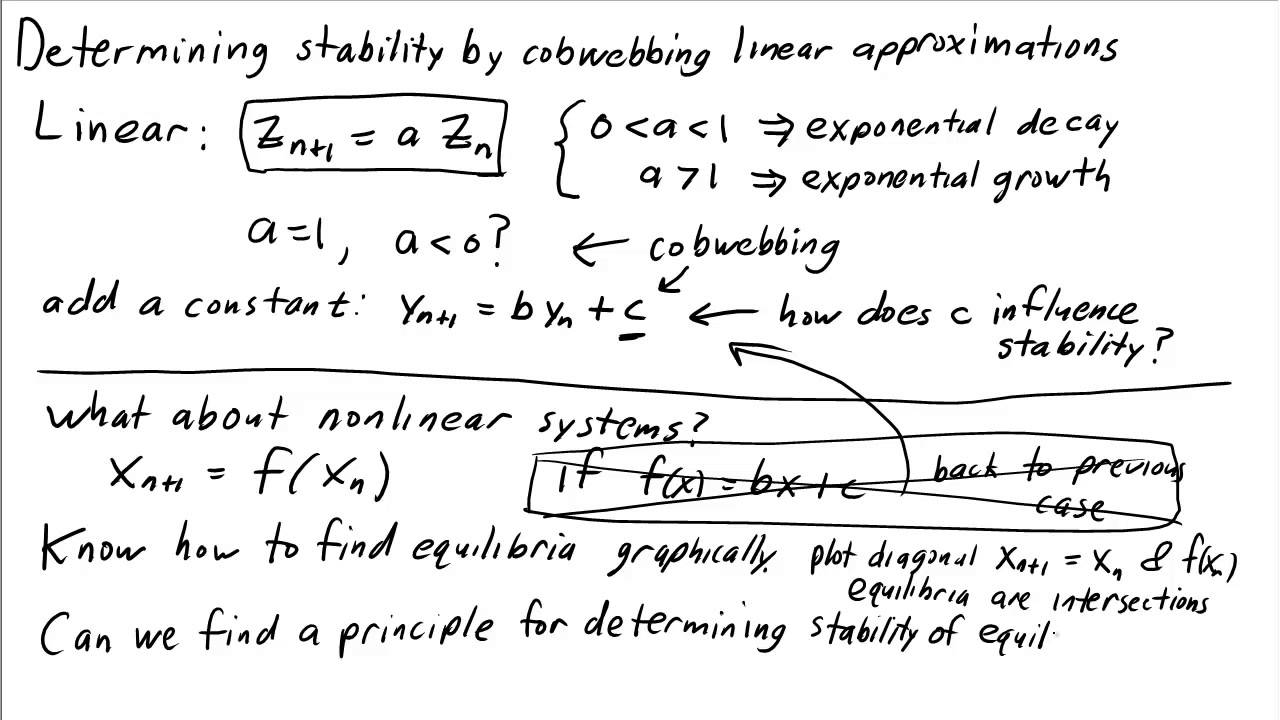 Determining stability by cobwebbing linear approximations
Linear: Zn+1 = a Zn { 0 < a < 1 ⇒ exponential decay
a > 1 ⇒ exponential growth
a = 1, a < 0? ← cobwebbing
add a constant: yn+1 = b yn + c ← how does c influence
stability?
What about nonlinear systems?
xn+1 = f(xn) if f(x) = bx + c back to previous
case
Know how to find equilibria graphically. plot diagonal xn+1 = xn & f(xn)
equilibria are intersections
Can we find a principle for determining stability of equil